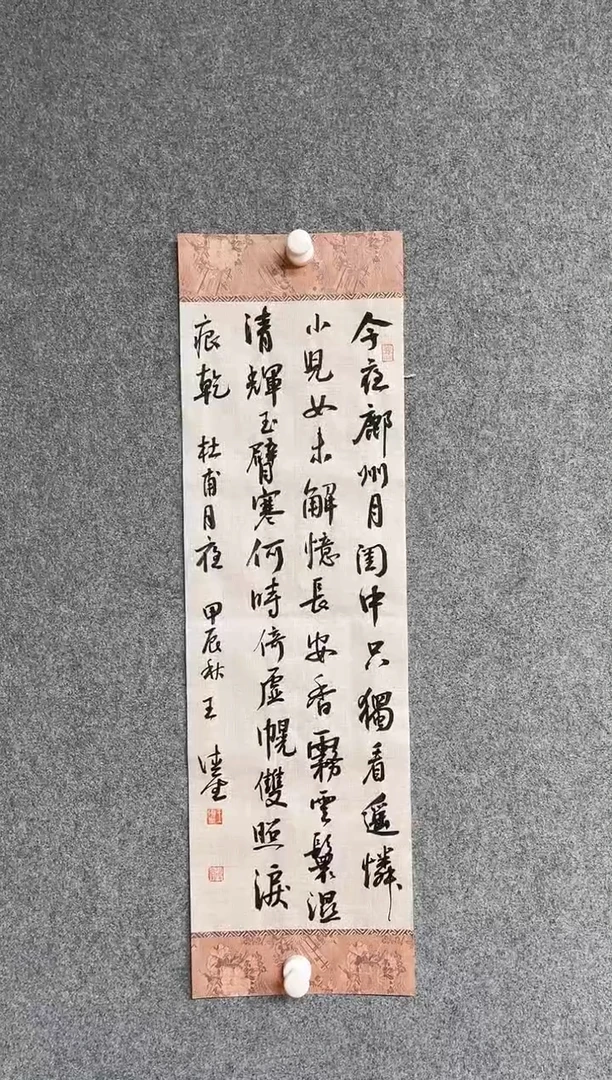 今夜鄜州月閨中只獨看遥憐
小兒女未解憶長安香霧雲鬟濕
清輝玉臂寒何時倚虛幌雙照淚
痕乾 杜甫月夜 甲辰秋 王